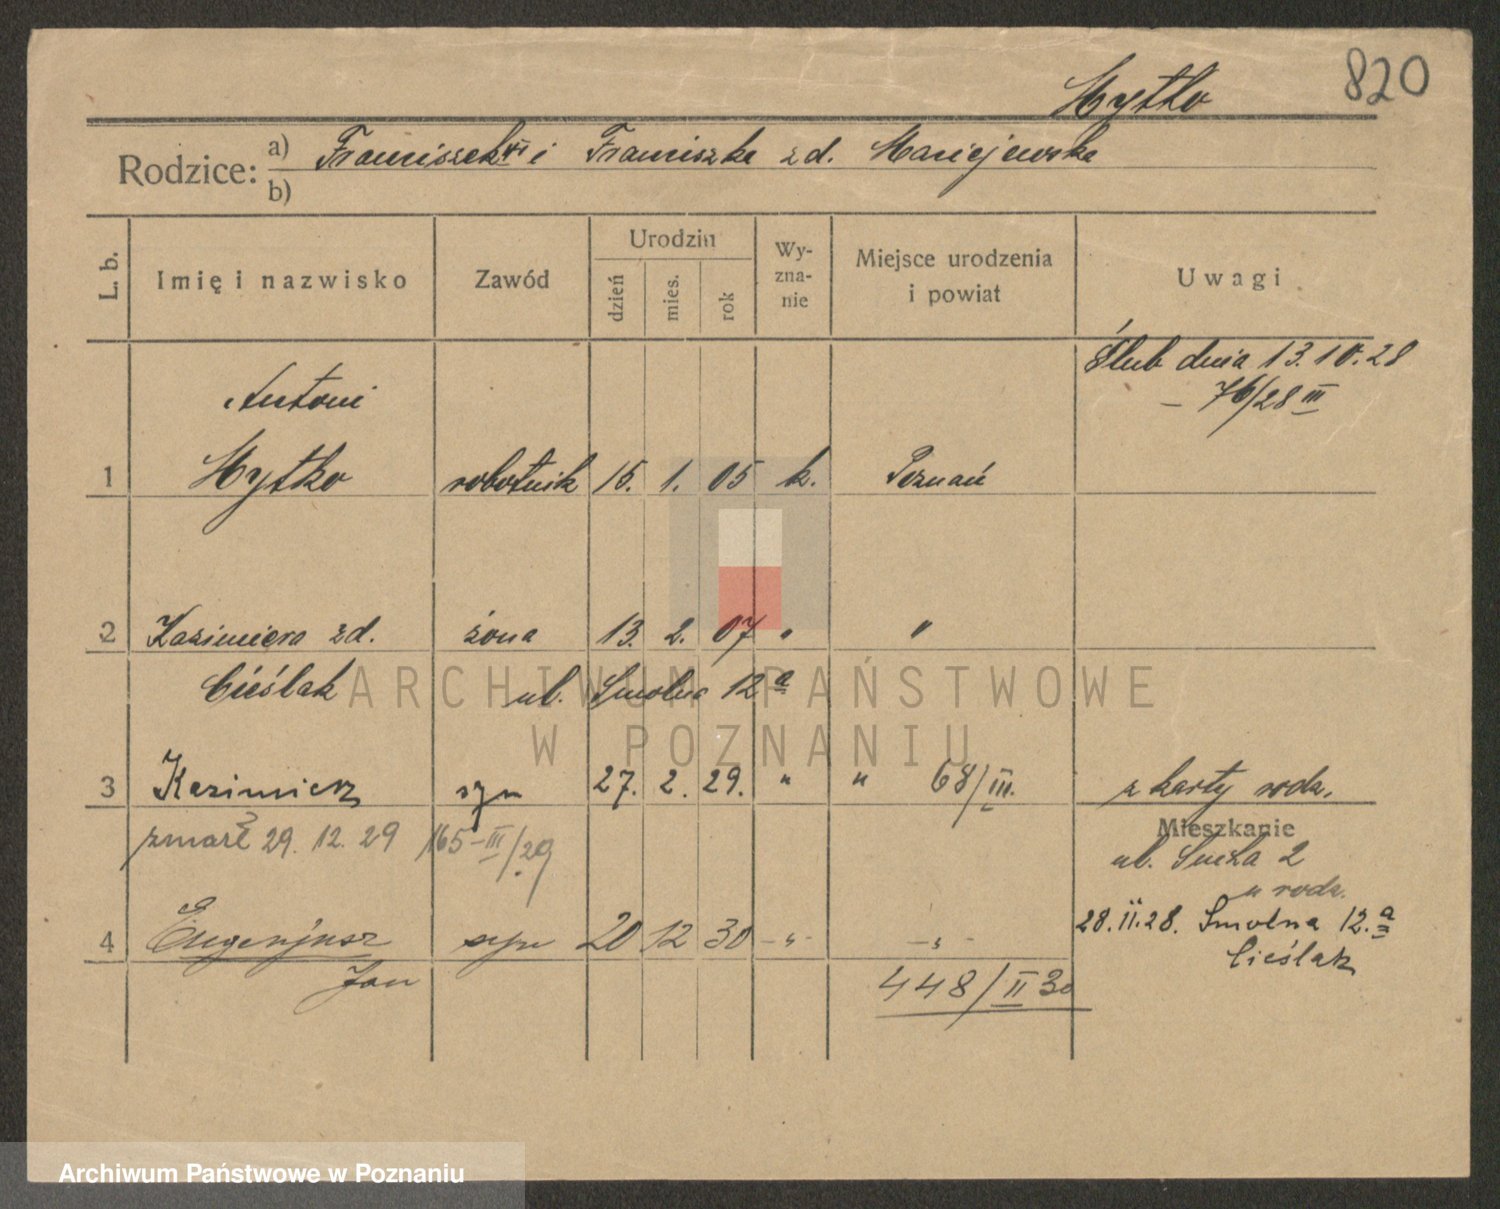 820
Hytko
Rodzice: a) Franciszek VI i Franciszka zd. Maciejewska
b)
L. b.
Imię i nazwisko
Zawód
Urodzin
dzień
mies.
rok
Wy-
zna-
nie
Miejsce urodzenia
i powiat
Uwagi
Ślub dnia 13.10.28
— 76/28 III
Antoni
1 Hytko robotnik 15. 1. 05 k. Poznań
2 Kazimiera zd. żona 13. 2. 07 " "
Cieślak ul. Smolna 12 a
3 Kazimierz syn 27. 2. 29. " " 68/III.
z karty rodz.
zmarł 29. 12. 29 165-III/29
Mieszkanie
ul. 2
u rodz.
28.II.28. Smolna 12.a
Cieślak
4 Eugenjusz syn 20 12 30 -"- -"-
Jan
448/II 30
ARCHIWUM PAŃSTWOWE
W POZNANIU
Archiwum Państwowe w Poznaniu